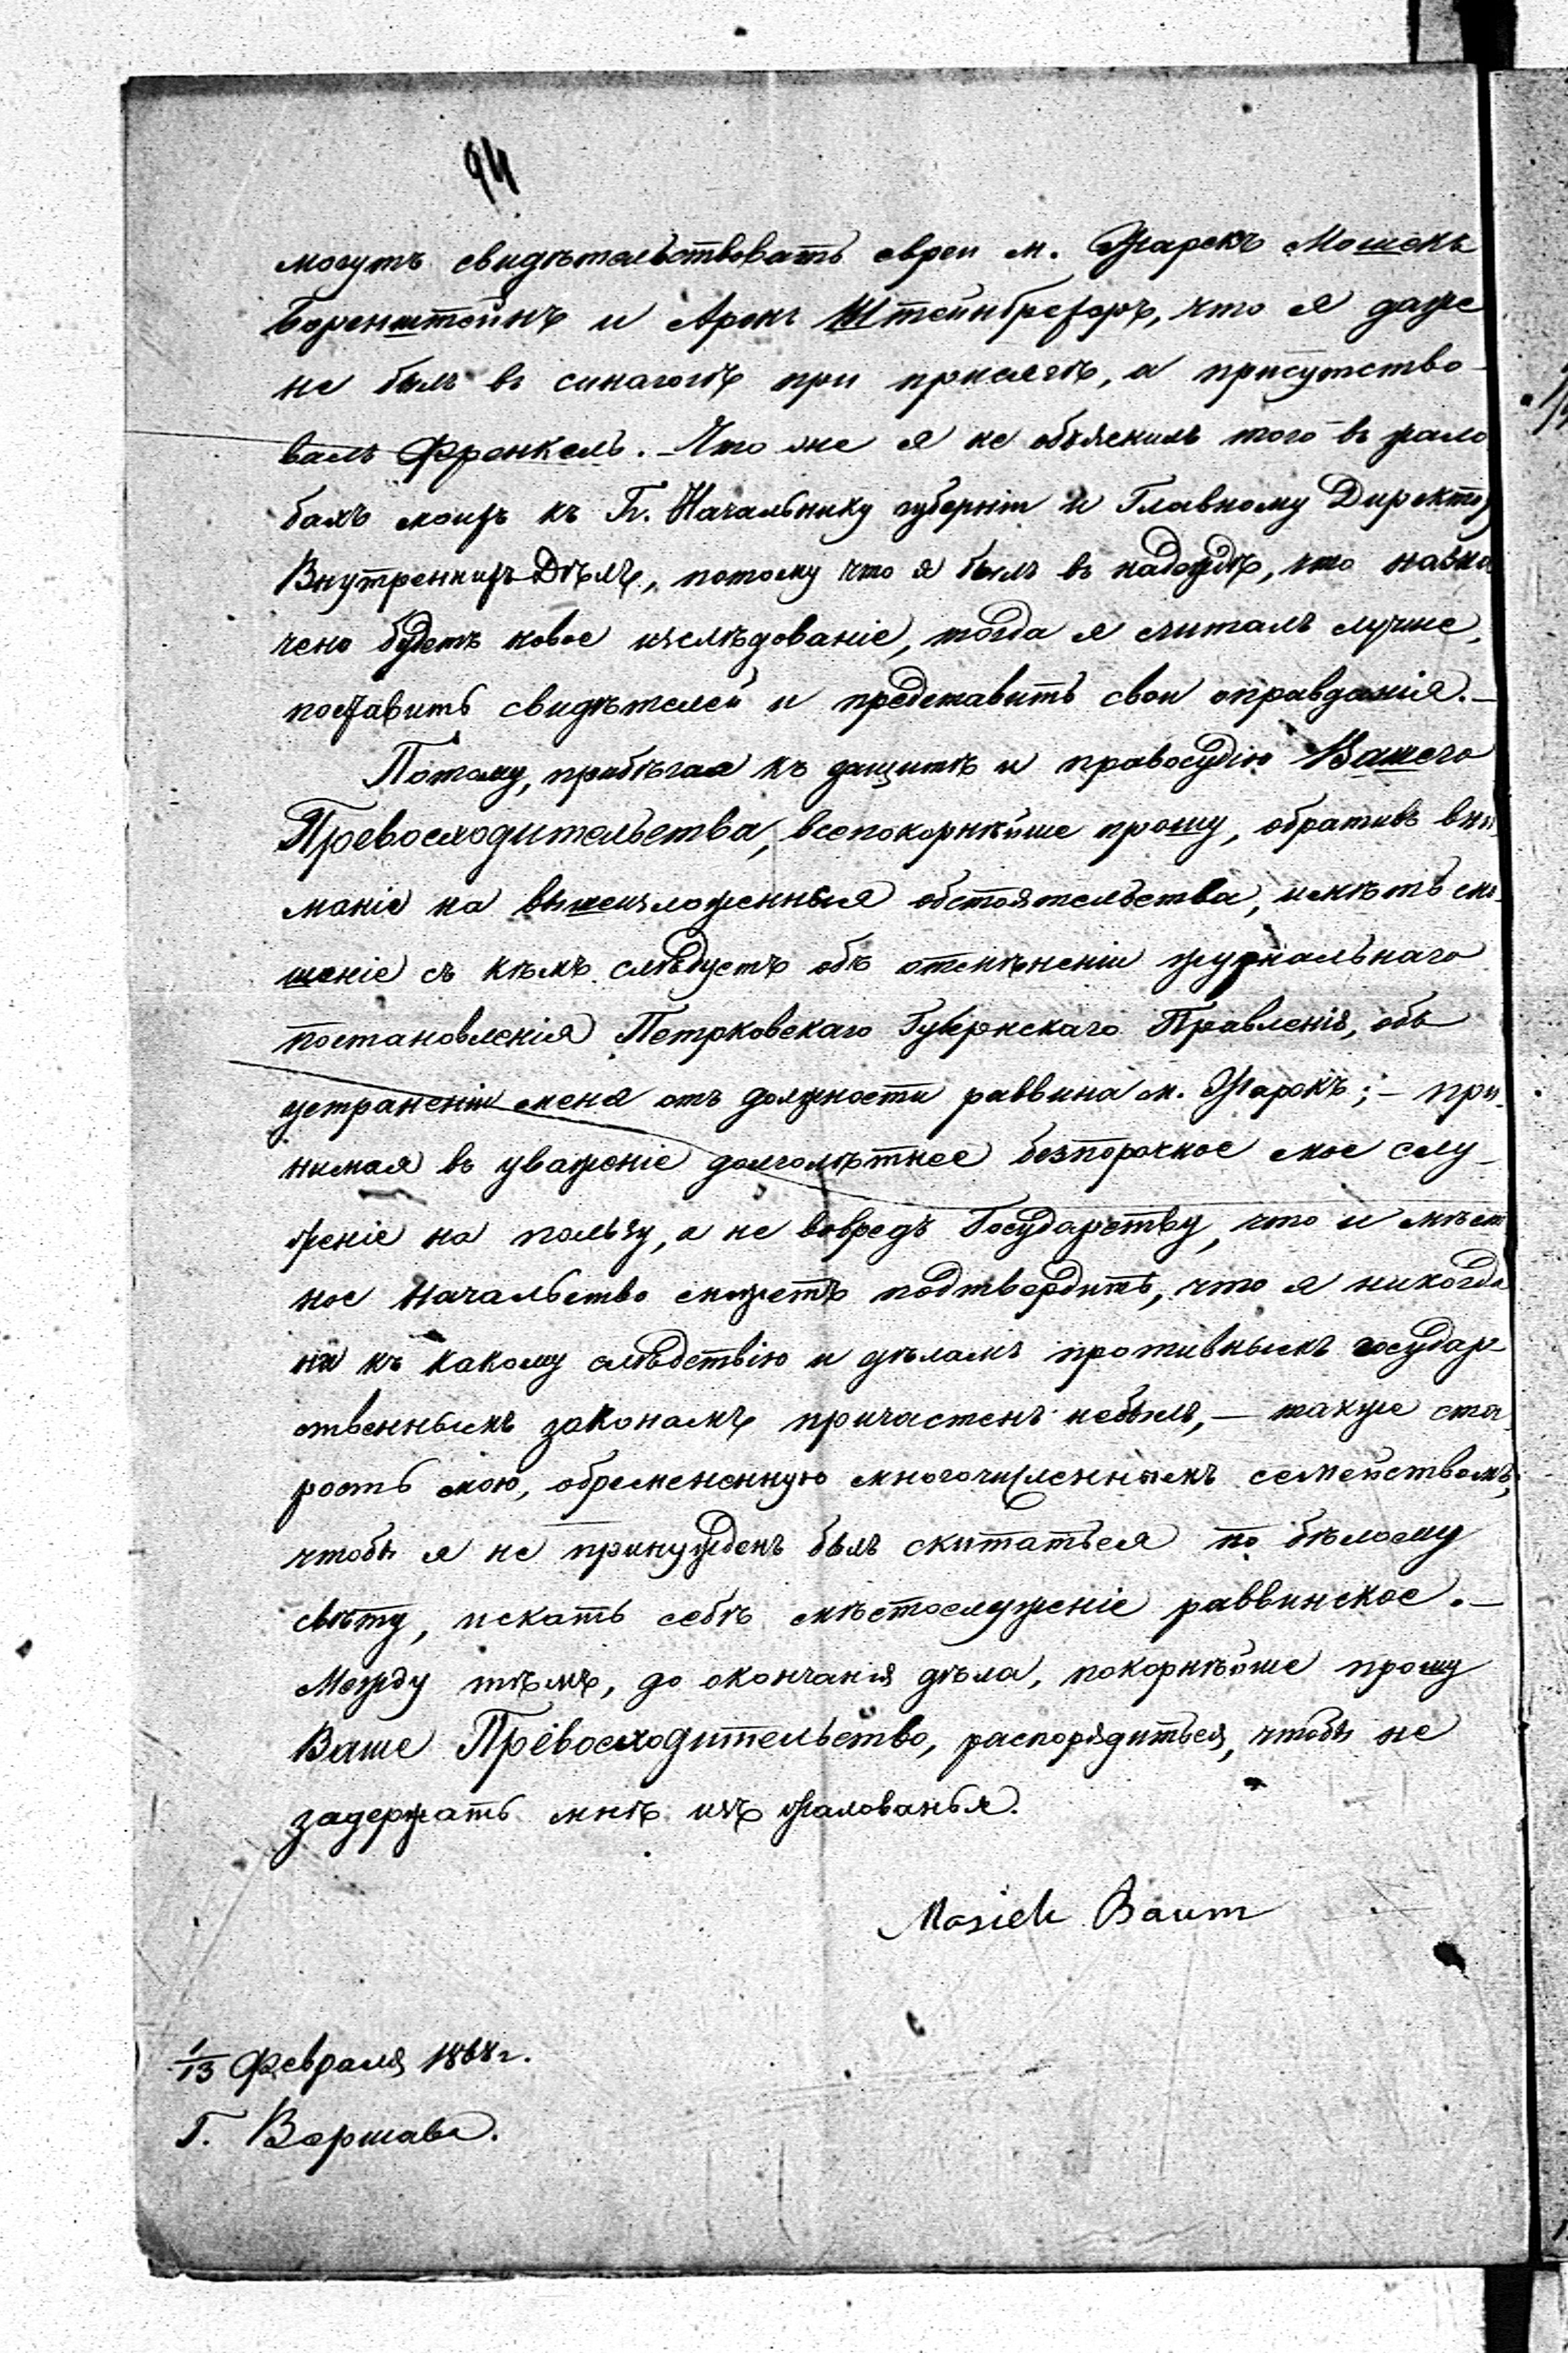 94
могутъ свидѣтельствовать евреи м. Жарекъ Мошекъ
Боренштейнъ и Аронъ Штейнбрехеръ, что я даже
не былъ въ синагогѣ при присягѣ, а присутство-
валъ Френкель. – Что же я не объяснилъ того въ жало
бахъ моихъ къ Гг. Начальнику губерніи и Главному Директору
Внутреннихъ Дѣлъ, потому что я былъ въ надеждѣ, что назна
чено будетъ новое изслѣдованіе, тогда я считалъ лучше,
поставить свидѣтелей и представить свои оправданія. –
Потому, прибѣгая къ защитѣ и правосудію Вашего
Превосходительства, всепокорнѣйше прошу, обративъ вни
маніе на вышеизложенныя обстоятельства, имѣть сно
шеніе съ кѣмъ слѣдуетъ объ отмѣненіи журнальнаго
постановленія Петрковскаго Губернскаго Правленія, объ
устраненіи меня отъ должности раввина м. Жарокъ; – при
нимая въ уваженіе долголѣтнее безпорочное мое слу-
женіе на пользу, а не вовредъ Государству, что и мѣст
ное начальство можетъ подтвердить, что я никогда
ни къ какому слѣдствію и дѣламъ противнымъ государ
ственнымъ законамъ причастенъ небылъ, – также ста
рость мою, обремененную многочисленнымъ семействомъ,
чтобы я не принужденъ былъ скитаться по бѣлому
свѣту, искать себѣ мѣстослуженіе раввинское. –
Между тѣмъ, до окончанія дѣла, покорнѣйше прошу
Ваше Превосходительство, распорядиться, чтобы не
задержать мнѣ изъ жалованья.
Mosiek Baum
1/13 Февраля 1868 г.
Г. Варшава.